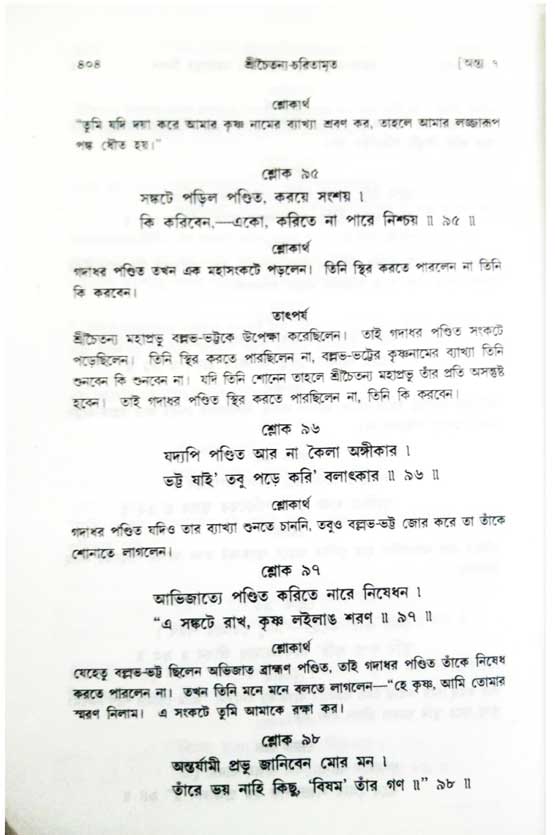 ৪০৪ শ্রীচৈতন্য-চরিতামৃত [অন্ত্য ৭
শ্লোকার্থ
“তুমি যদি দয়া করে আমার কৃষ্ণ নামের ব্যাখ্যা শ্রবণ কর, তাহলে আমার লজ্জারূপ
পঙ্ক ধৌত হয়।”
শ্লোক ৯৫
সঙ্কটে পড়িল পণ্ডিত, করয়ে সংশয় ।
কি করিবেন,—একো, করিতে না পারে নিশ্চয় ॥ ৯৫ ॥
শ্লোকার্থ
গদাধর পণ্ডিত তখন এক মহাসংকটে পড়লেন। তিনি স্থির করতে পারলেন না তিনি
কি করবেন।
তাৎপর্য
শ্রীচৈতন্য মহাপ্রভু বল্লভ-ভট্টকে উপেক্ষা করেছিলেন। তাই গদাধর পণ্ডিত সংকটে
পড়েছিলেন। তিনি স্থির করতে পারছিলেন না, বল্লভ-ভট্টের কৃষ্ণনামের ব্যাখ্যা তিনি
শুনবেন কি শুনবেন না। যদি তিনি শোনেন তাহলে শ্রীচৈতন্য মহাপ্রভু তাঁর প্রতি অসন্তুষ্ট
হবেন। তাই গদাধর পণ্ডিত স্থির করতে পারছিলেন না, তিনি কি করবেন।
শ্লোক ৯৬
যদ্যপি পণ্ডিত আর না কৈলা অঙ্গীকার ।
ভট্ট যাই’ তবু পড়ে করি’ বলাৎকার ॥ ৯৬ ॥
শ্লোকার্থ
গদাধর পণ্ডিত যদিও তার ব্যাখ্যা শুনতে চাননি, তবুও বল্লভ-ভট্ট জোর করে তা তাঁকে
শোনাতে লাগলেন।
শ্লোক ৯৭
আভিজাত্যে পণ্ডিত করিতে নারে নিষেধন ।
“এ সঙ্কটে রাখ, কৃষ্ণ লইলাঙ শরণ ॥ ৯৭ ॥
শ্লোকার্থ
যেহেতু বল্লভ-ভট্ট ছিলেন অভিজাত ব্রাহ্মণ পণ্ডিত, তাই গদাধর পণ্ডিত তাঁকে নিষেধ
করতে পারলেন না। তখন তিনি মনে মনে বলতে লাগলেন—“হে কৃষ্ণ, আমি তোমার
স্মরণ নিলাম। এ সংকটে তুমি আমাকে রক্ষা কর।
শ্লোক ৯৮
অন্তর্যামী প্রভু জানিবেন মোর মন ।
তাঁরে ভয় নাহি কিছু, ‘বিষম’ তাঁর গণ ॥” ৯৮ ॥